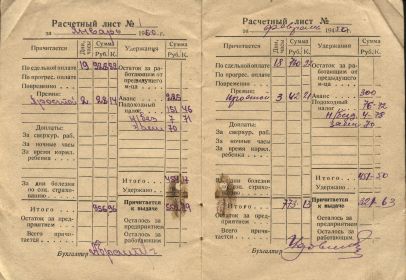 Расчетный лист № 1
за Январь 1950 г.
Причитается
Дни, часы
Сумма
Руб. К.
Удержания
Сумма
Руб. К.
По сдельной оплате 19
По прогрес. оплате
Премия:
Простой 2
Доплаты:
За сверхур. раб.
За ночные часы
За время кормл. ребенка
За дни болезни по соц. страхованию
Итого
Остаток за предприятием
Всего причитается
Остаток за работающим от предыдущего м-ца
Аванс 285
Подоходный налог 151 46
7 71
70
Итого Удержано
Причитается к выдаче
Осталось за предприятием
Осталось за работающим
Бухгалтер
Расчетный лист №
за февраль 195
Причитается
Дни, часы
Сумма
Руб. К.
Удержания
Сумма
Руб. К.
По сдельной оплате 18
По прогрес. оплате
Премия:
Простой 3 42 21
Доплаты:
За сверхур. раб.
За ночные часы
За время кормл. ребенка
За дни болезни по соц. страхованию
Итого 773-13
Остаток за предприятием
Всего причитается
Остаток за работающим от предыдущего м-ца
Аванс 300
Подоходный налог 76-72
4-78
Заем 70
Итого Удержано 451-50
Причитается к выдаче 321 63
Осталось за предприятием
Осталось за работающим
Бухгалтер